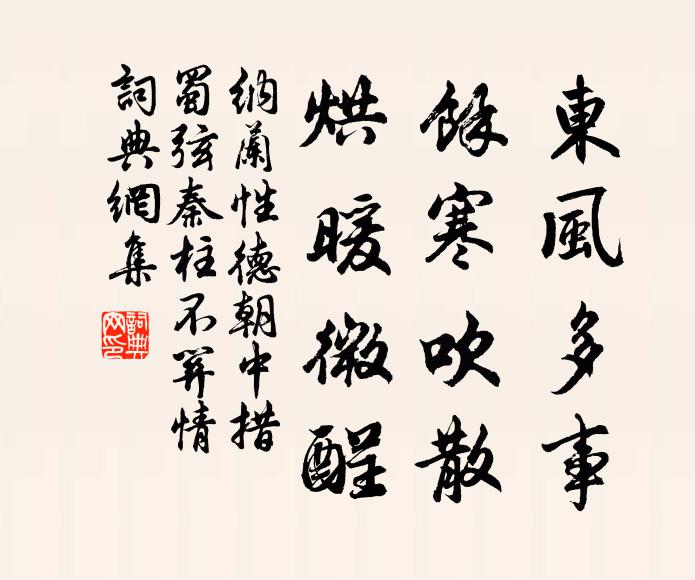 東風多事
餘寒吹散
烘暖微酲
納蘭性德朝中措
蜀弦秦柱不關情
詞典網集
詞典網印